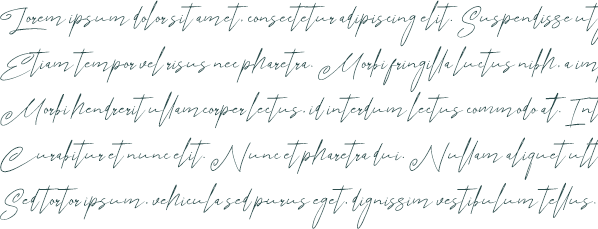 Lorem ipsum dolor sit amet, consectetur adipiscing elit. Suspendisse ut
Etiam tempor vel risus nec pharetra. Morbi fringilla luctus nibh, a im
Morbi hendrerit ullamcorper lectus, id interdum lectus commodo at. Int
Curabitur et nunc elit. Nunc et pharetra dui. Nullam aliquet ult
Sed tortor ipsum, vehicula sed purus eget, dignissim vestibulum tellus.